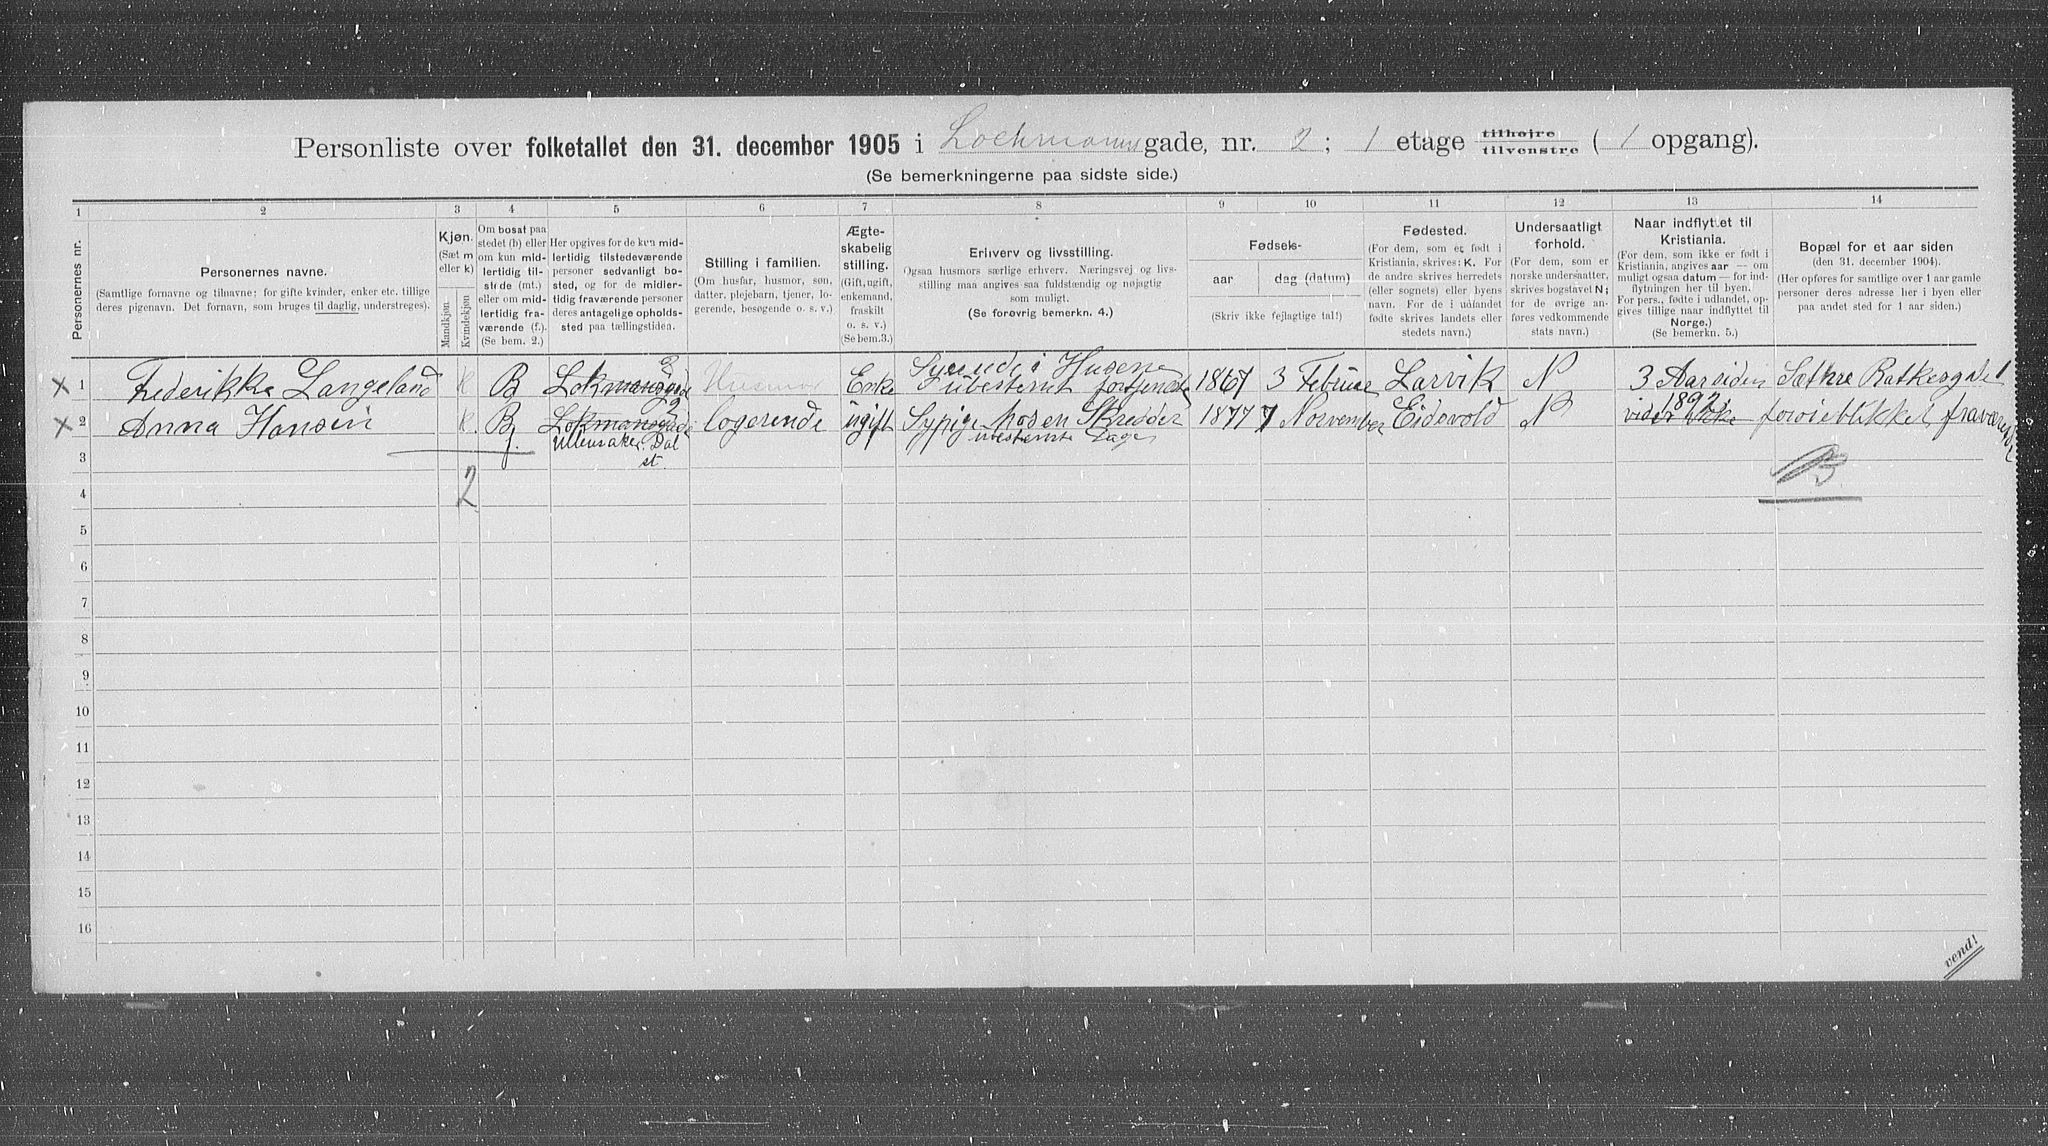 Personliste over folketallet den 31. december 1905 i Lochmannsgade, nr. 2; 1 etage tilhøjre tilvenstre ( 1 opgang).
(Se bemerkningerne paa sidste side.)
1 2 3 4 5 6 7 8 9 10 11 12 13 14
Personernes nr.
Personernes navne.
(Samtlige fornavne og tilnavne; for gifte kvinder, enker etc. tillige
deres pigenavn. Det fornavn, som bruges til daglig, understreges).
Kjøn.
(Sæt m
eller k)
Mandkjøn
Kvindekjøn
Om bosat paa
stedet (b) eller
om kun mid-
lertidig til-
stede (mt.)
eller om mid-
lertidig fra-
værende (f.).
(Se bem. 2.)
Her opgives for de kun mid-
lertidig tilstedeværende
personer sedvanligt bo-
sted, og for de midler-
tidig fraværende personer
deres antagelige opholds-
sted paa tællingstiden.
Stilling i familien.
(Om husfar, husmor, søn,
datter, plejebarn, tjener, lo-
gerende, besøgende o. s. v.)
Ægte-
skabelig
stilling.
(Gift, ugift,
enkemand,
fraskilt
o. s. v.)
(Se bem.3.)
Erhverv og livsstilling.
Ogsaa husmors særlige erhverv. Næringsvej og livs-
stilling maa angives saa fuldstændig og nøjagtig
som muligt.
(Se forøvrig bemerkn. 4.)
Fødsels-
aar dag (datum)
(Skriv ikke fejlagtige tal!)
Fødested.
(For dem, som er født i
Kristiania, skrives: K. For
de andre skrives herredets
(eller sognets) eller byens
navn. For de i udlandet
fødte skrives landets eller
stedets navn.)
Undersaatligt
forhold.
(For dem, som er
norske undersaatter,
skrives bogstavet N;
for de øvrige an-
føres vedkommende
stats navn.)
Naar indflyttet til
Kristiania.
(For dem, som ikke er født i
Kristiania, angives aar — om
muligt ogsaa datum — for ind-
flytningen her til byen.
For pers., fødte i udlandet, op-
gives tillige naar indflyttet til
Norge.)
(Se bemerkn. 5.)
Bopæl for et aar siden
(den 31. december 1904).
(Her opføres for samtlige over 1 aar gamle
personer deres adresse her i byen eller
paa andet sted for 1 aar siden.)
x 1 Frederikke Langeland k B Lokmansgade 2 Husmor Enke Syende i Husene ubestemt fortjeneste 1867 3 Februar Larvik N 3 Aar siden Sæthre Ratkesgade 1
x 2 Anna Hansen k. B Lokmansgade 2 logerende ugift Sypige hos en Skredder 1877 7 November Eidsvold N 1892 forøieblikket fraværende
f. Ullensaker. Dal st. ubestemte
3
4 2 B
5
6
7
8
9
10
11
12
13
14
15
16
vend!